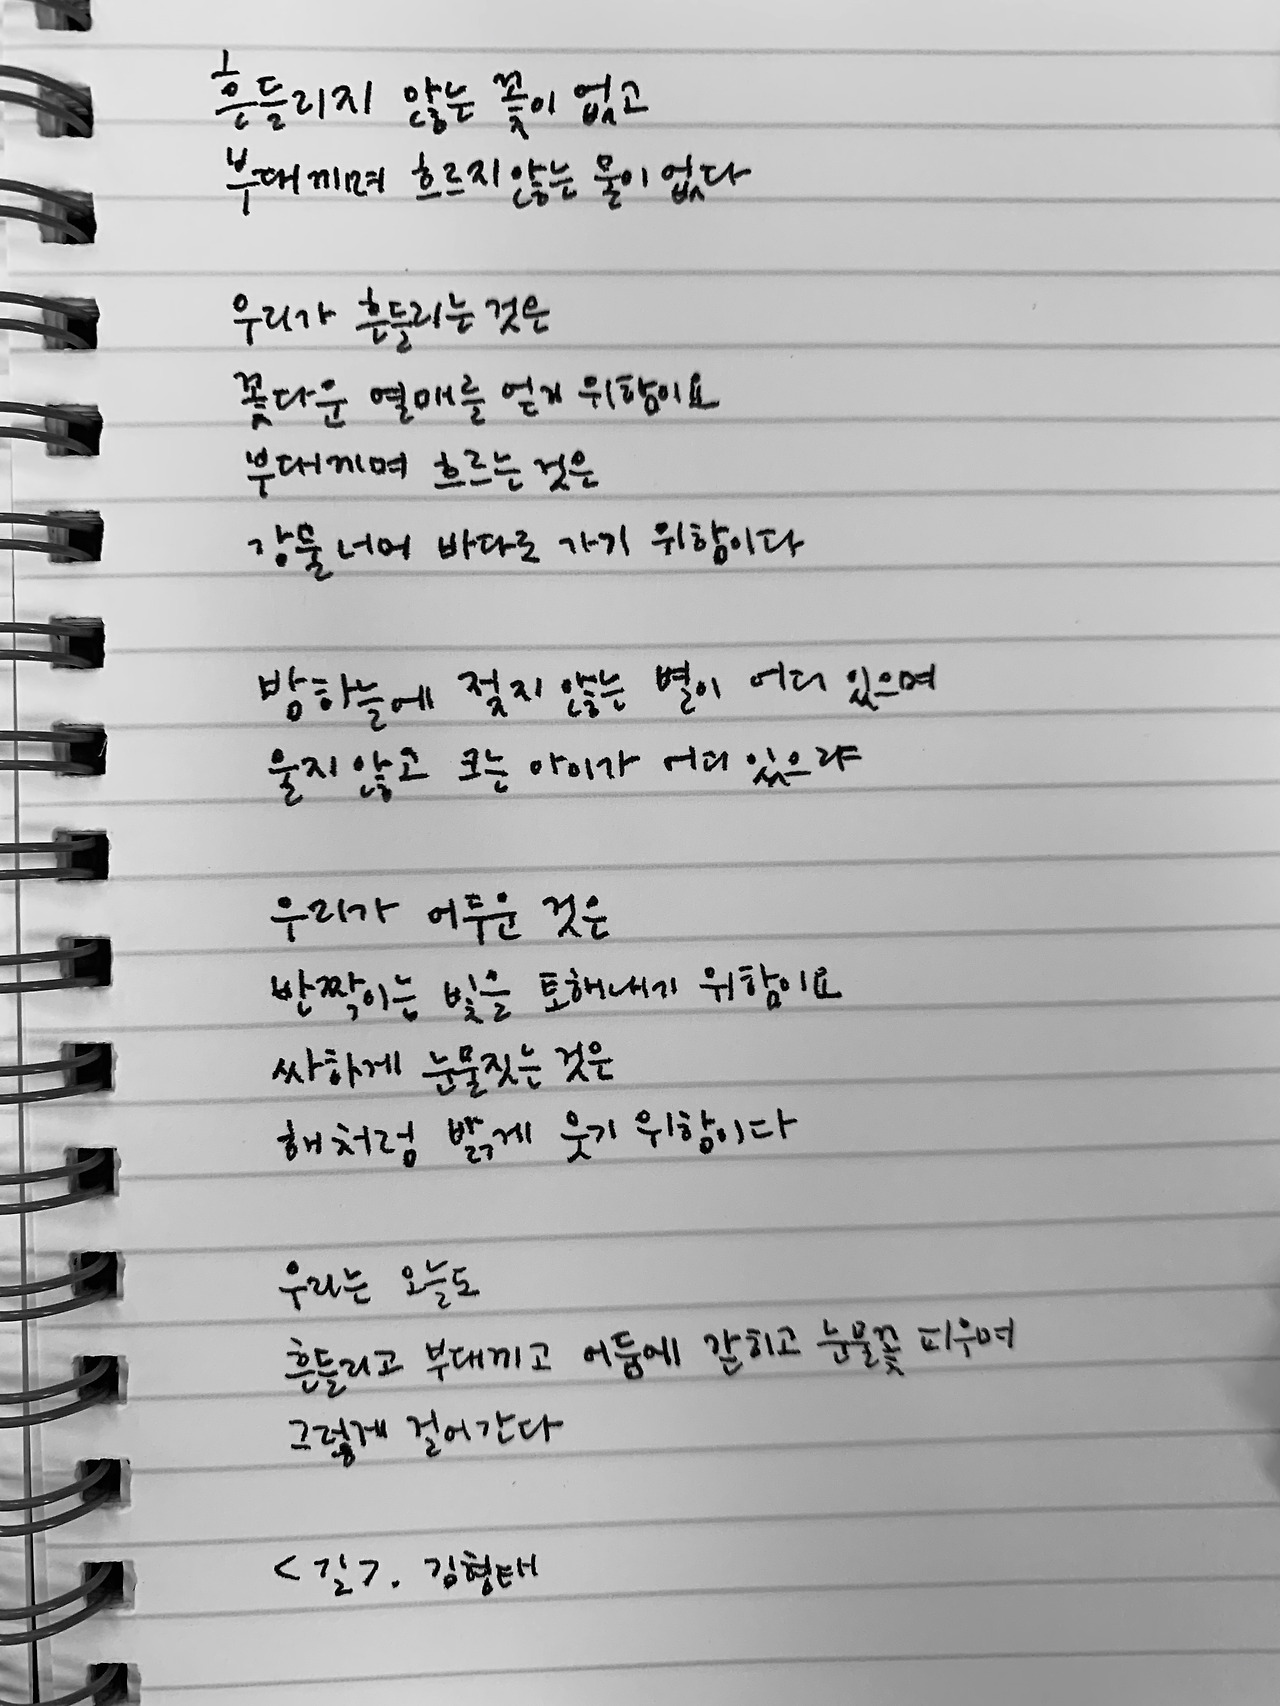 흔들리지 않는 꽃이 없고
부대끼며 흐르지 않는 물이 없다
우리가 흔들리는 것은
꽃다운 열매를 얻기 위함이요
부대끼며 흐르는 것은
강물 너머 바다로 가기 위함이다
밤하늘에 젖지 않는 별이 어디 있으며
울지 않고 크는 아이가 어디 있으랴
우리가 어두운 것은
반짝이는 빛을 토해내기 위함이요
싸하게 눈물짓는 것은
해처럼 밝게 웃기 위함이다
우리는 오늘도
흔들리고 부대끼고 어둠에 갇히고 눈물꽃 피우며
그렇게 걸어간다
<길>. 김형태